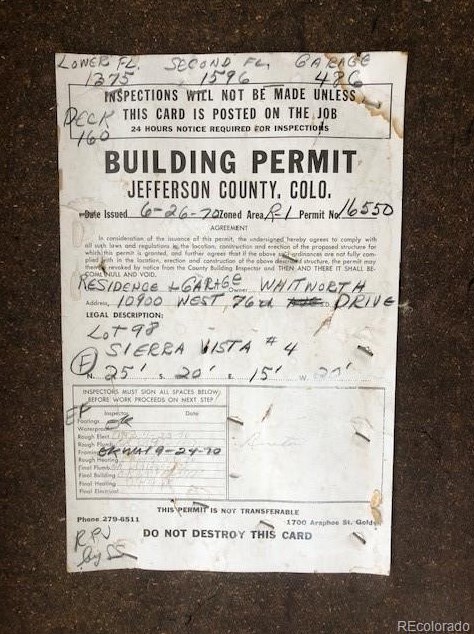 LOWER FL. SECOND FL. GARAGE
1375 1596 486
INSPECTIONS WILL NOT BE MADE UNLESS
THIS CARD IS POSTED ON THE JOB
24 HOURS NOTICE REQUIRED FOR INSPECTIONS
DECK
160
BUILDING PERMIT
JEFFERSON COUNTY, COLO.
Date Issued 6-26-70 Zoned Area R-1 Permit No. 16550
AGREEMENT
In consideration of the issuance of this permit, the undersigned hereby agrees to comply with
all such laws and regulations in the location, construction and erection of the proposed structure for
which this permit is granted, and further agrees that if the above said ordinances are not fully com-
plied with in the location, erection and construction of the above described structure, the permit may
then be revoked by notice from the County Building Inspector and THEN AND THERE IT SHALL BE-
COME NULL AND VOID.
RESIDENCE + GARAGE Owner WHITNORTH
Address, 10900 WEST, 76th DRIVE
LEGAL DESCRIPTION:
LOT 98
SIERRA VISTA # 4
E
N. 25' S. 20' E. 15' W. 20'
INSPECTORS MUST SIGN ALL SPACES BELOW
BEFORE WORK PROCEEDS ON NEXT STEP
Inspector Date
EF
Footings OK
Waterproof
Rough Elect.
Rough Plumb.
Framing OK WA 9-24-70
Rough Heating
Final Plumb.
Final Building
Final Heating
Final Electrical
THIS PERMIT IS NOT TRANSFERABLE
Phone 279-6511 1700 Arapahoe St. Golden
DO NOT DESTROY THIS CARD
REcolorado